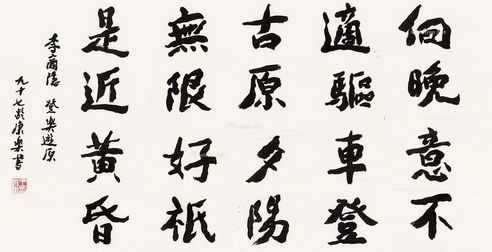 向晚意不
適驅車登
古原夕陽
無限好祇
是近黃昏
李商隱 登樂遊原
九十七叟康樂書